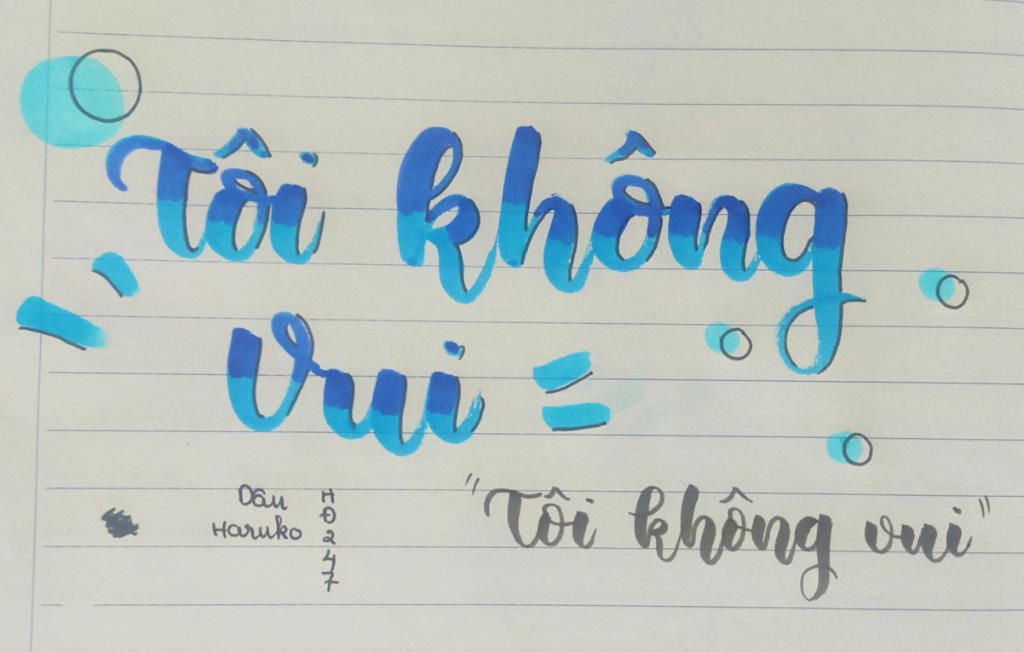 Tôi không
vui
Dâu
Haruko
HĐ247
"Tôi không vui"